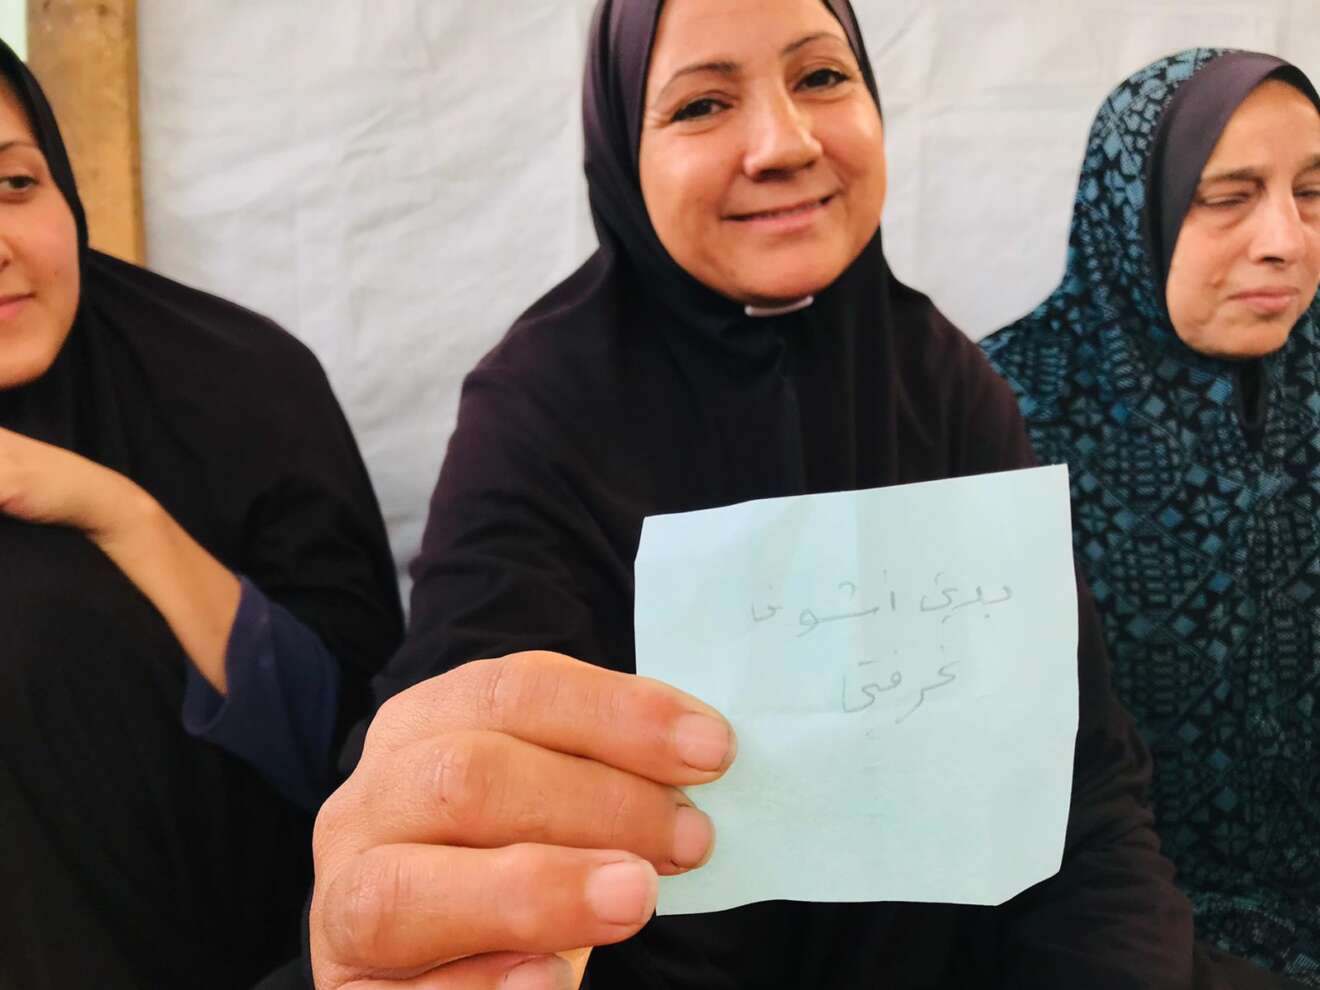 بدي أشوف
غرفتي